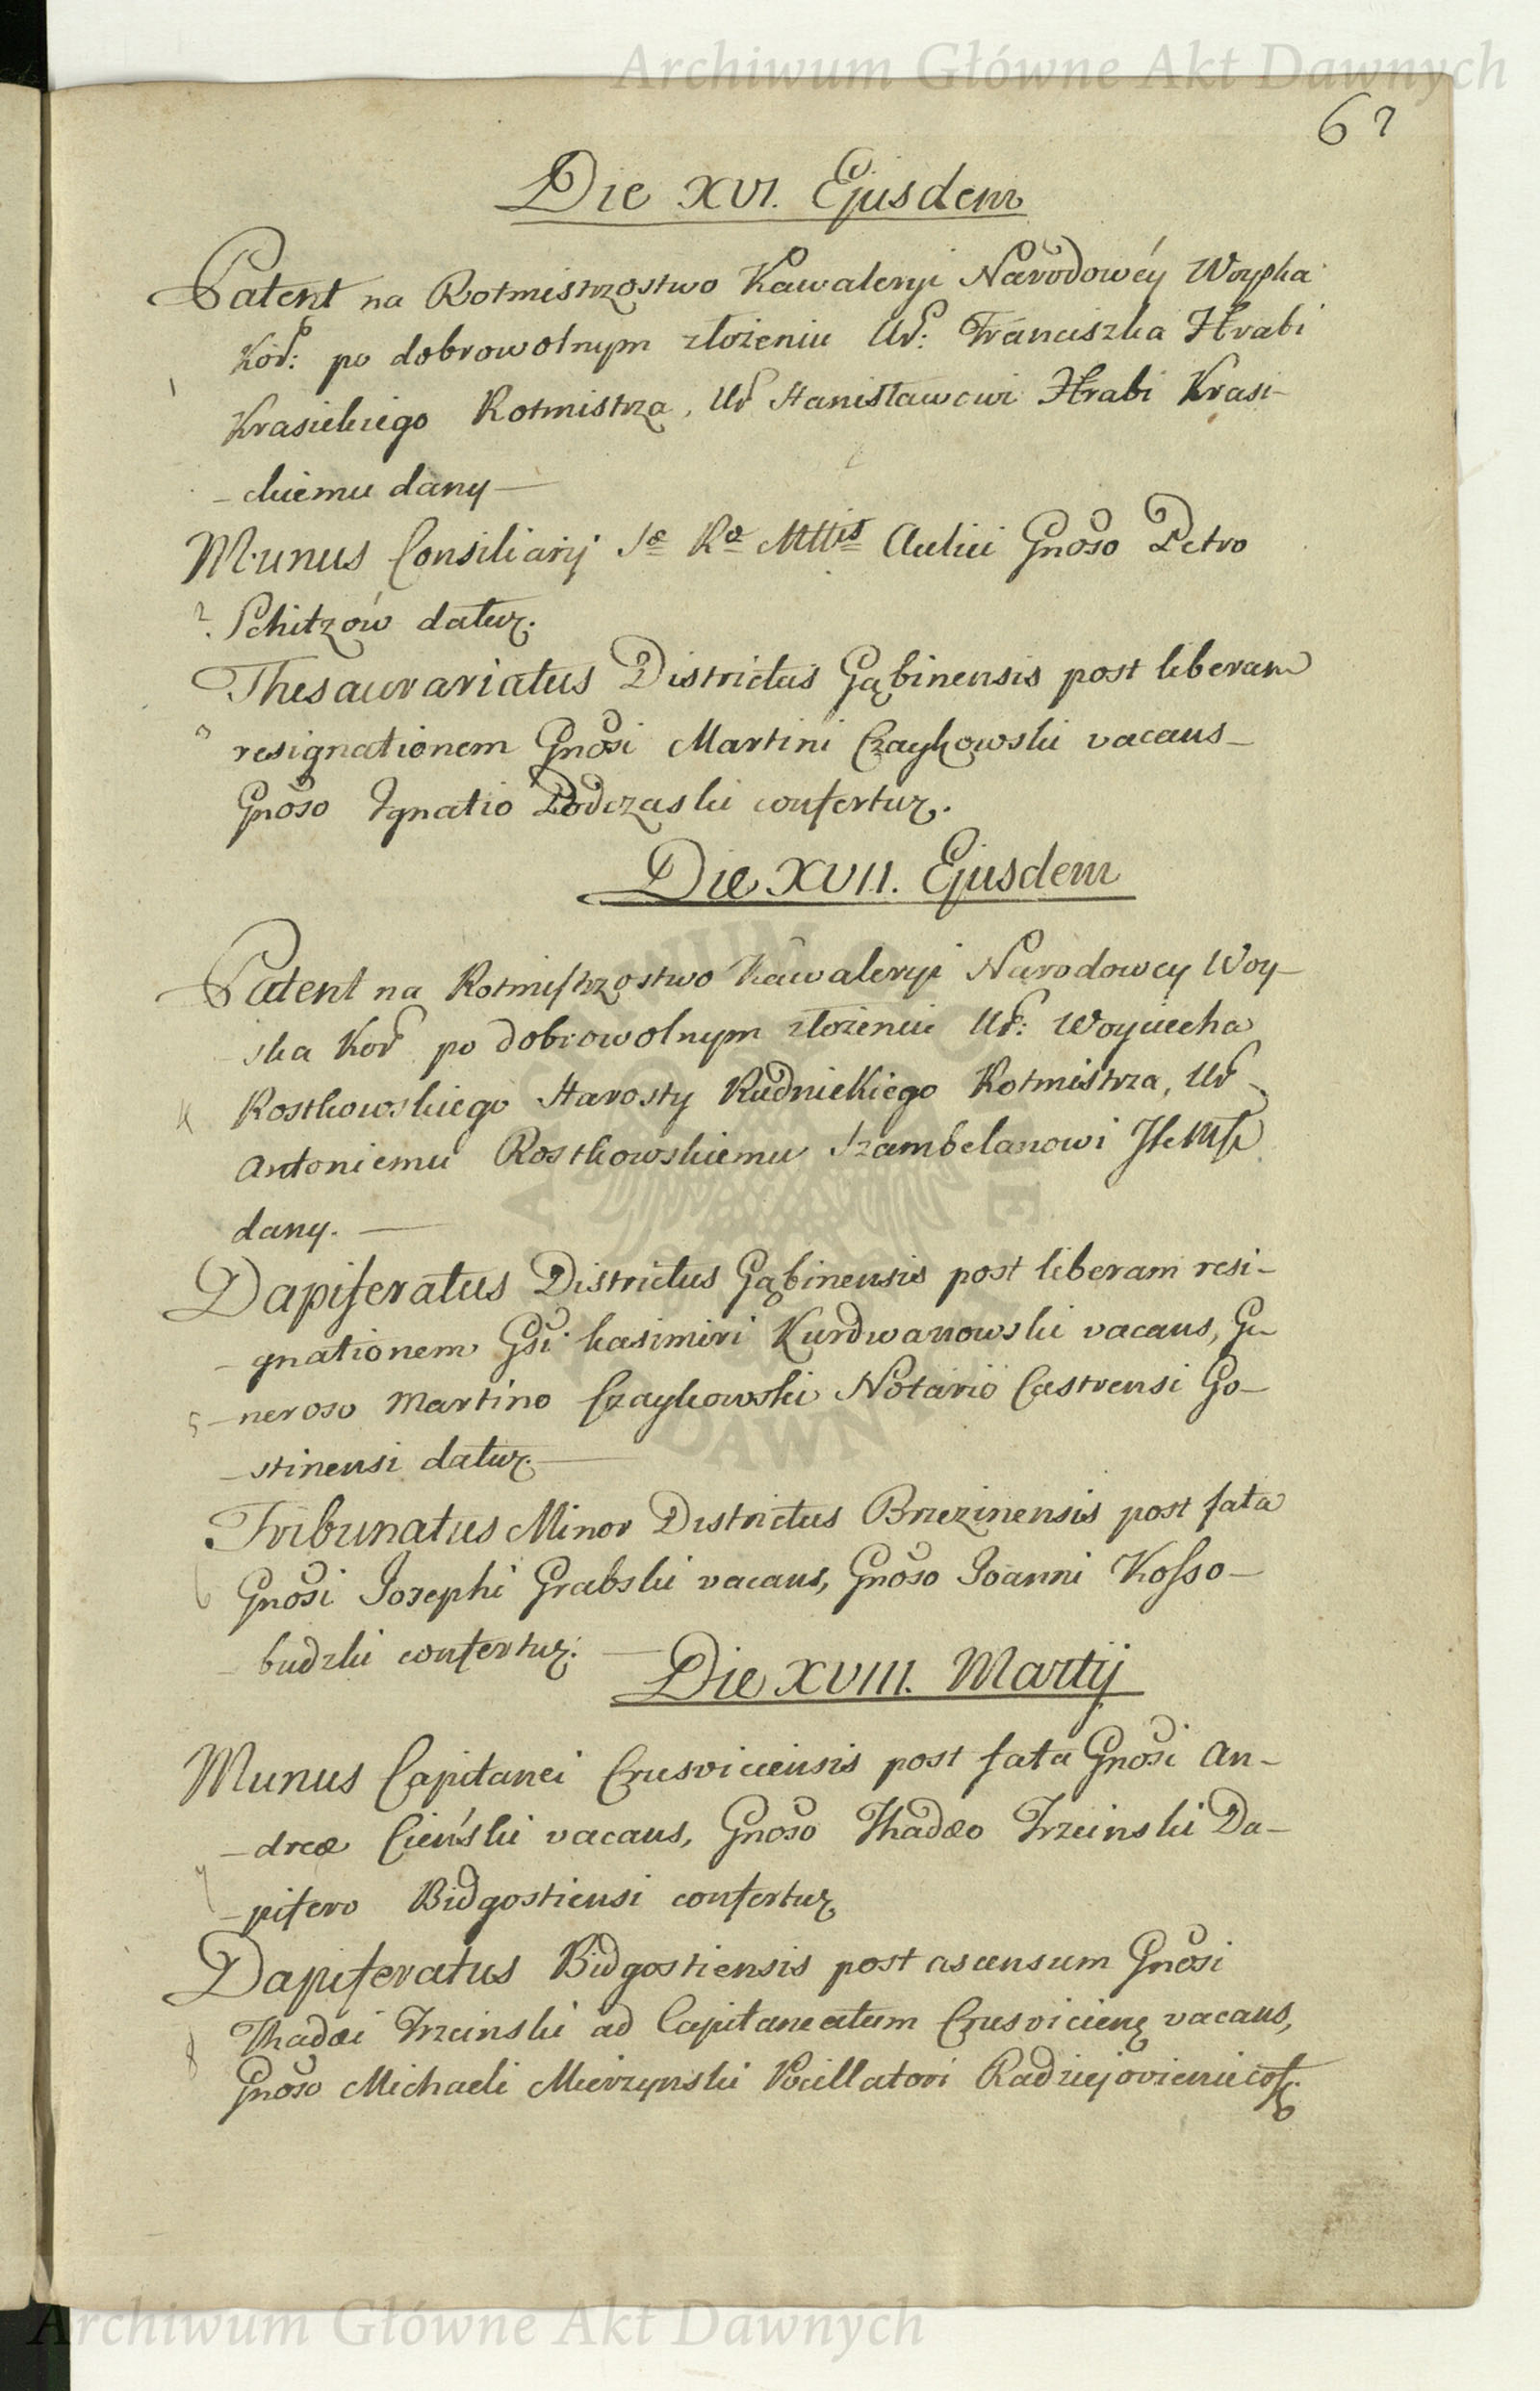 Archiwum Główne Akt Dawnych
67
Die XVI. Ejusdem
Patent na Rotmistrzostwo Kawaleryi Narodowéy Woyska
Kor: po dobrowolnym złożeniu Ur: Franciszka Hrabi
1 Krasickiego Rotmistrza, Ur Stanisławowi Hrabi Krasi-
-ckiemu dany —
Munus Consiliarij Sæ Ræ Mttis Aulici Gnoso Petro
2. Schitzów datur.
Thesaurariatus Districtus Gąbinensis post liberam
3 resignationem Gnosi Martini Czaykowski vacans_
Gnoso Ignatio Podczaski confertur.
Die XVII. Ejusdem
Patent na Rotmistrzostwo Kawaleryi Narodowey Woy-
ska Kor po dobrowolnym złożeniu Ur: Woyciecha
4 Rostkowskiego Starosty Rudnickiego Rotmistrza, Ur
Antoniemu Rostkowskiemu Szambelanowi JKMśći
dany. —
Dapiferatus Districtus Gąbinensis post liberam resi-
-gnationem Gsi Kasimiri Kurdwanowski vacans, Ge-
5 -neroso Martino Czaykowski Notario Castrensi Go-
-stinensi datur. —
Tribunatus Minor Districtus Brzezinensis post fata
6 Gnosi Josephi Grabski vacans, Gnoso Joanni Kosso-
-budzki confertur. —
Die XVIII. Martij
Munus Capitanei Crusviciensis post fata Gnosi An-
-dreæ Cieński vacans, Gnoso Thadæo Trzcinski Da-
7 -pifero Bidgostiensi confertur
Dapiferatus Bidgostiensis post ascensum Gnosi
8 Thadæi Trzcinski ad Capitaneatum Crusvicien vacans,
Gnoso Michaeli Mierzynski Pocillatori Radziejoviensi conf.
Archiwum Główne Akt Dawnych